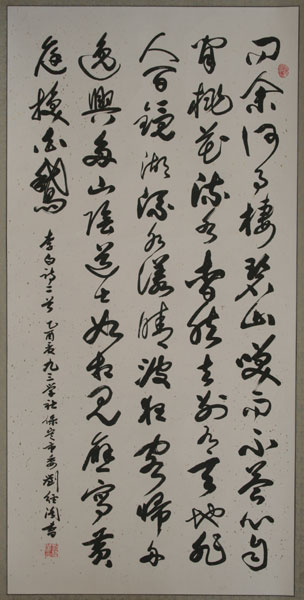 问余何事棲碧山笑而不答心自
闲桃花流水杳然去别有天地非
人间镜湖流水漾晴波狂客歸舟
逸興多山陰道士如相見應寫黄
庭換白鵝
李白诗二首 乙酉夏九三学社保定市委劉经书